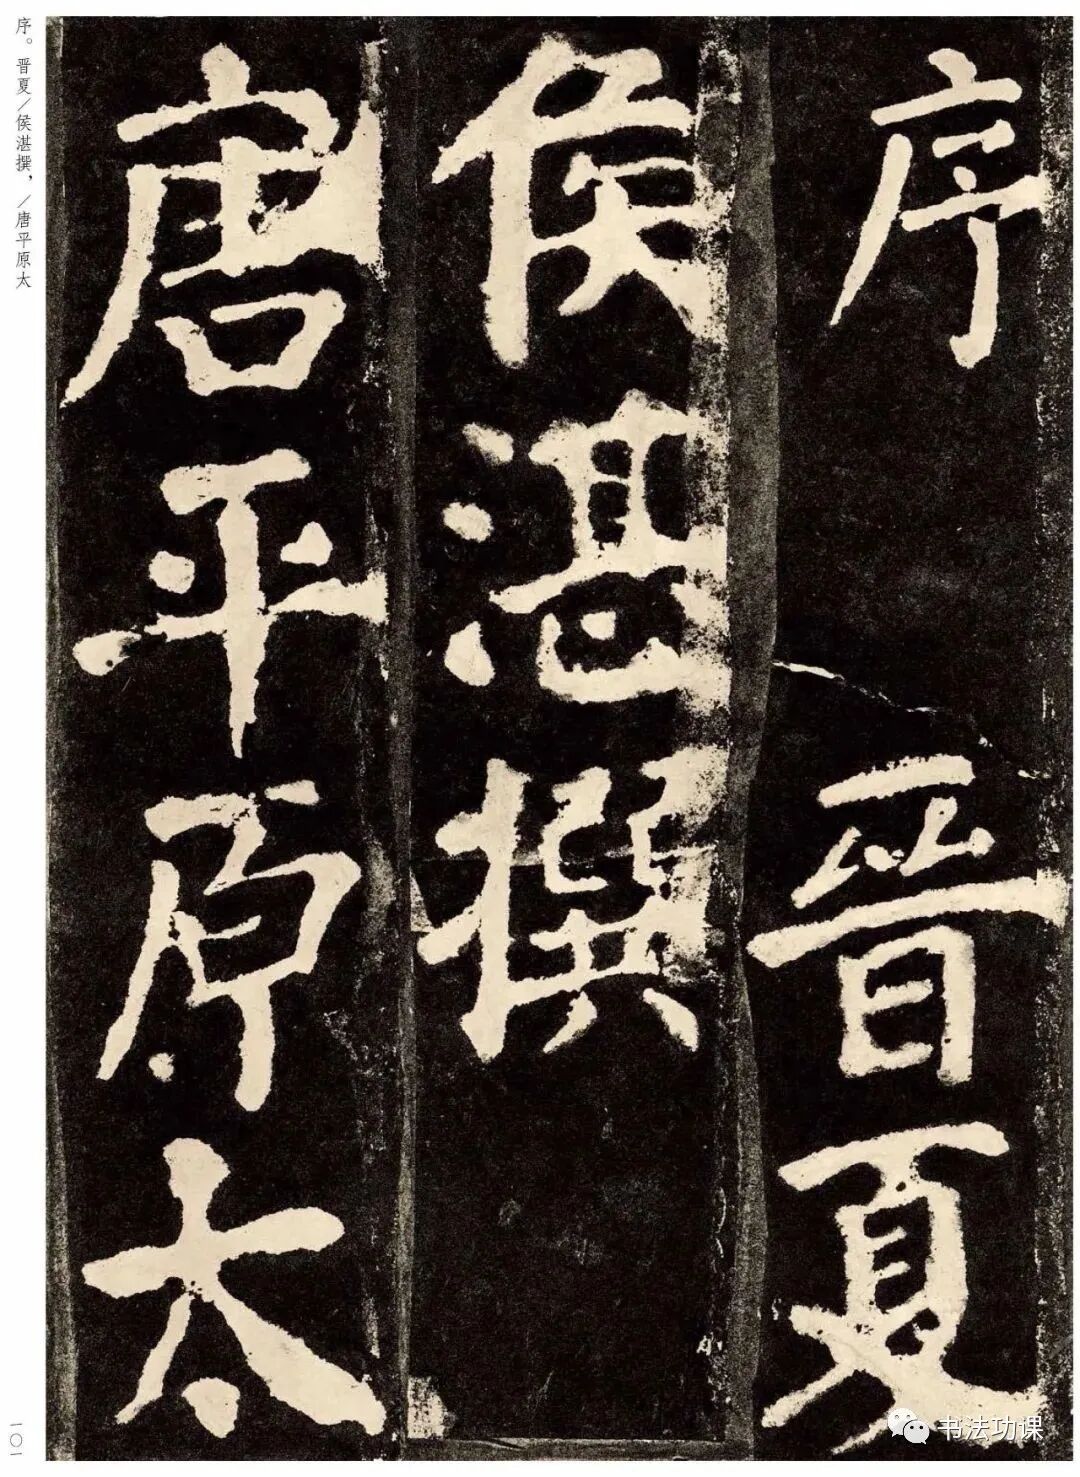 序晋夏
侯湛撰
唐平原太
序。晋夏／侯湛撰，／唐平原太
一〇一
书法功课